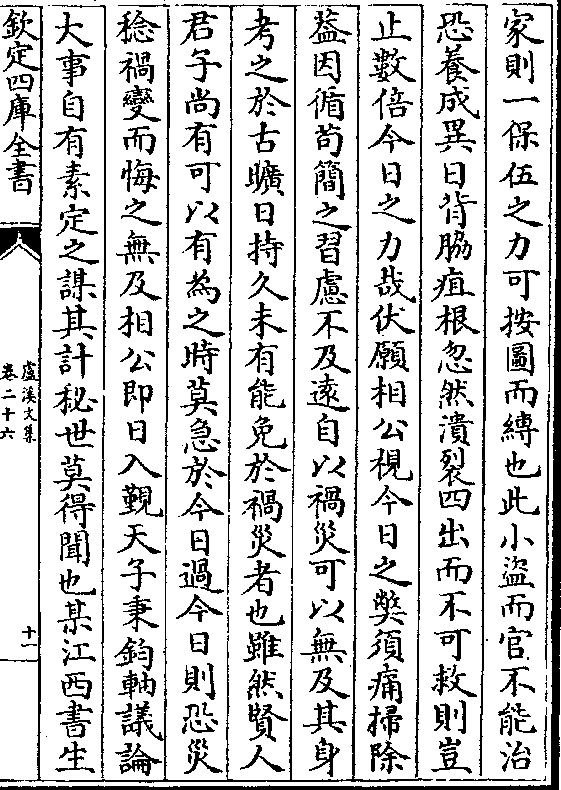 家則一保伍之力可按圖而縛也此小盜而官不能治
恐養成異日背脇疽根忽然潰裂四出而不可救則豈
止數倍今日之力哉伏願相公視今日之弊須痛掃除
葢因循茍簡之習慮不及遠自以禍災可以無及其身
考之於古曠日持久未有能免於禍災者也雖然賢人
君子尚有可以有為之時莫急於今日過今日則恐災
稔禍變而悔之無及相公即日入覲天子秉鈞軸議論
大事自有素定之謀其計秘世莫得聞也某江西書生
欽定四庫全書
盧溪文集
卷二十六
十一